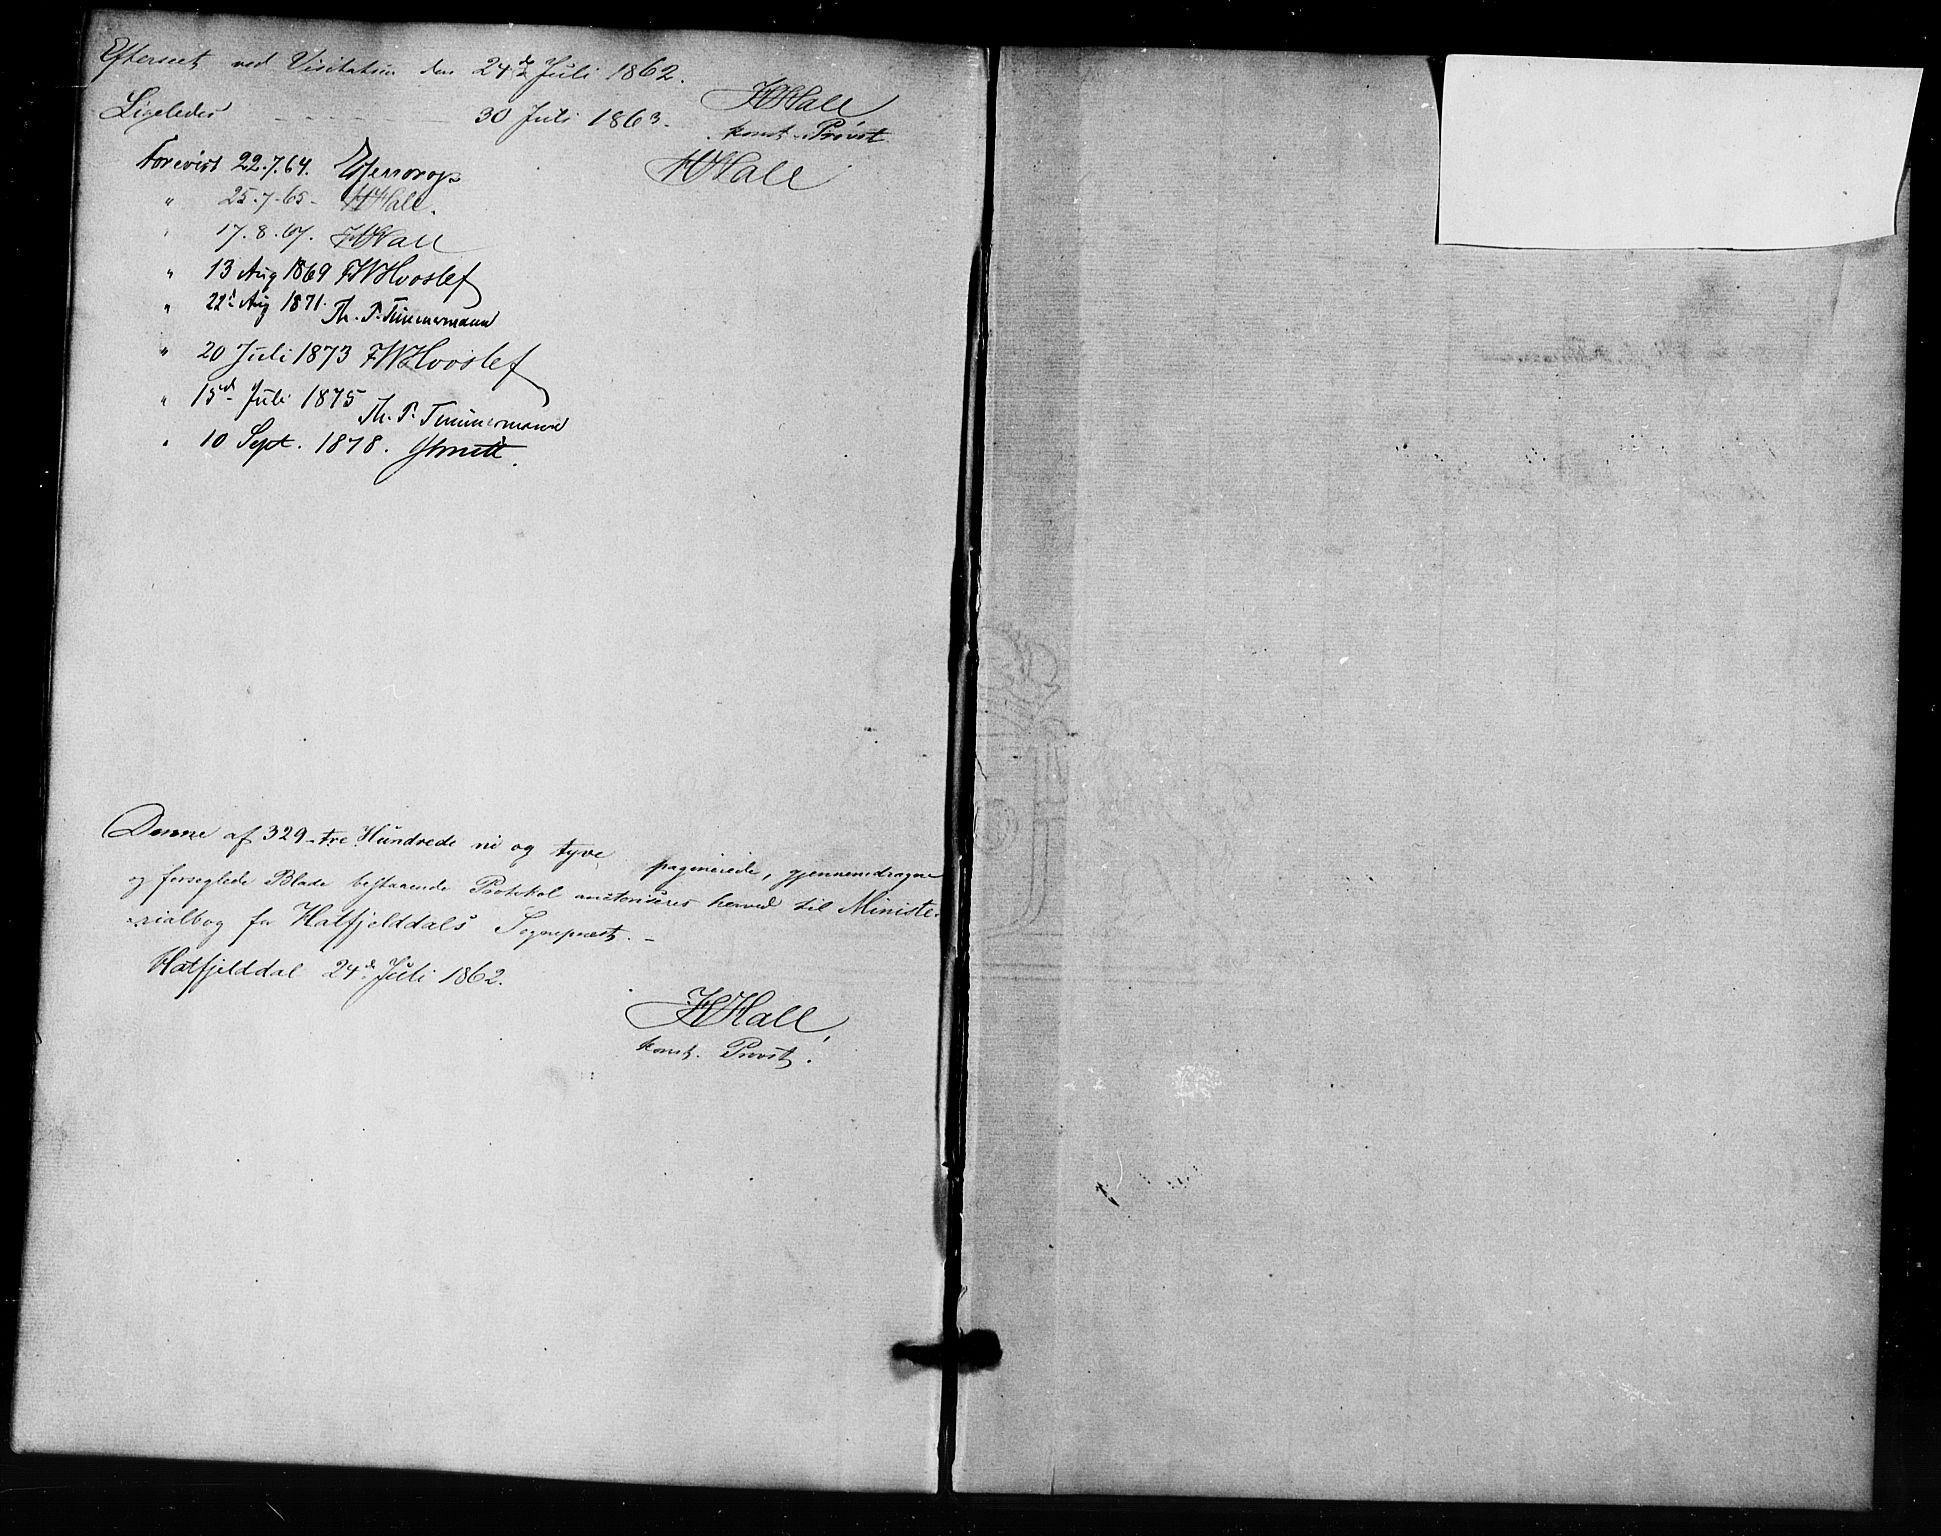 Efterseet ved Visitatsen den 24de Juli 1862.
HHall
konst. Provst
Ligeledes - - - - - - 30 Juli 1863.
HHall
Forevist 22.7.64.
" 25.7.65. HHall.
" 17.8.67. HHall
" 13 Aug 1869 FWHvoslef
" 22d Aug 1871. Th. P. Timmermann
" 20 Juli 1873 FWHvoslef
" 15d Juli 1875 Th. P. Timmermann
" 10 Sept. 1878.
Denne af 329 - tre Hundrede ni og tyve paginerede, gjennemdragne
og forseglede Blade bestaaende Protokol auctoriseres herved til Ministe-
-rialbog for Hatfjelddals Sognepræst. -
Hatfjelddal 24d Juli 1862.
HHall
konst. Provst.